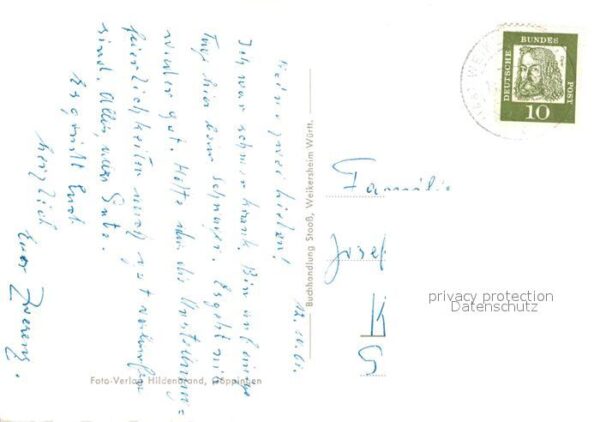 12. 11. 61.
Meine zwei lieben!
Ich war schwer krank. Bin auf einige
Tage hier beim Schwager. Es geht mir
wieder gut. Hoffe daß die
feierlichkeiten noch gut verlaufen
sind. Alles Gute.
Es grüßt Euch
herzlich
Euer
Buchhandlung Stooß, Weikersheim Württ.
Foto-Verlag Hildenbrand, Göppingen
DEUTSCHE BUNDES POST
10
Familie
Josef
K
G
privacy protection
Datenschutz